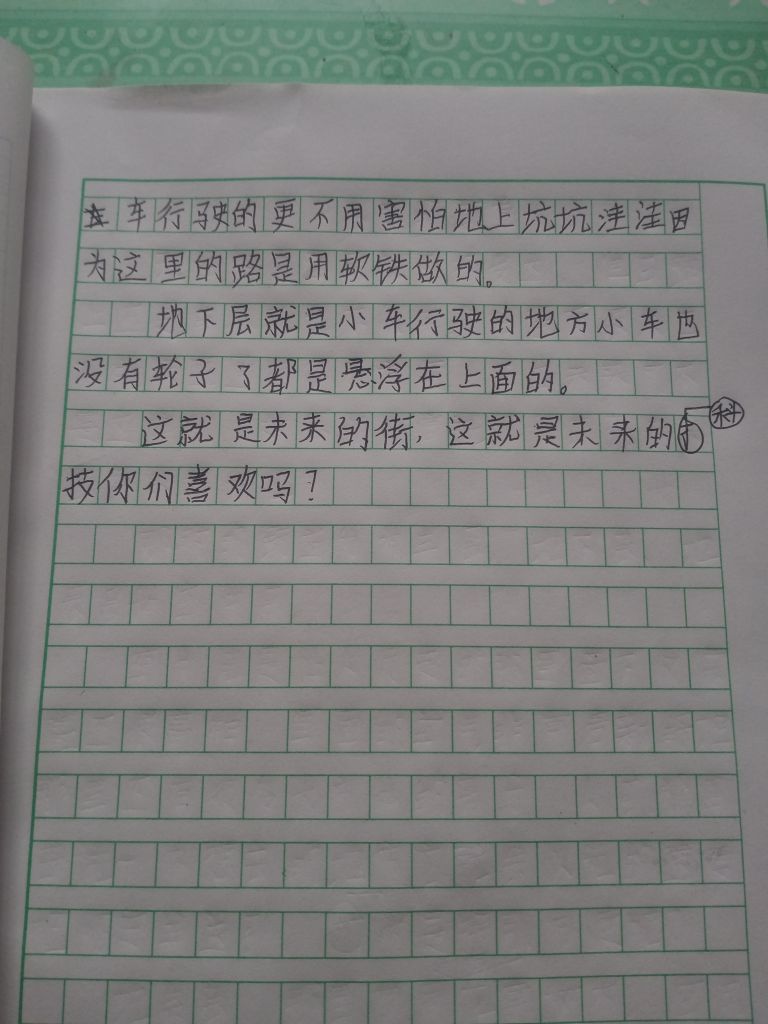 车行驶的更不用害怕地上坑坑洼洼因
为这里的路是用软铁做的。
地下层就是小车行驶的地方小车也
没有轮子了都是悬浮在上面的。
这就是未来的街，这就是未来的科
技你们喜欢吗？